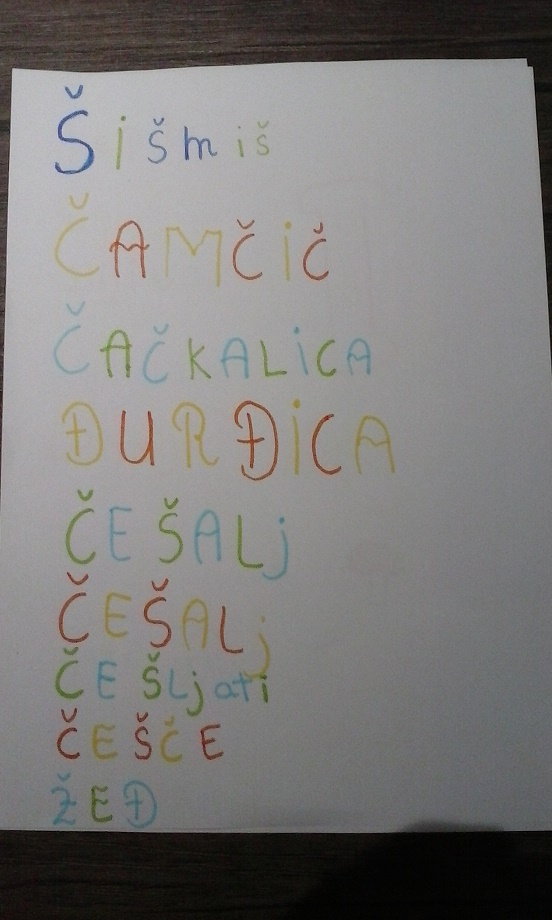 Šišmiš
ČAMČiČ
ČAČKALiCA
ĐURĐiCA
ČEŠALj
ČEŠALj
ČEŠLjati
ČEŠČE
ŽEĐ